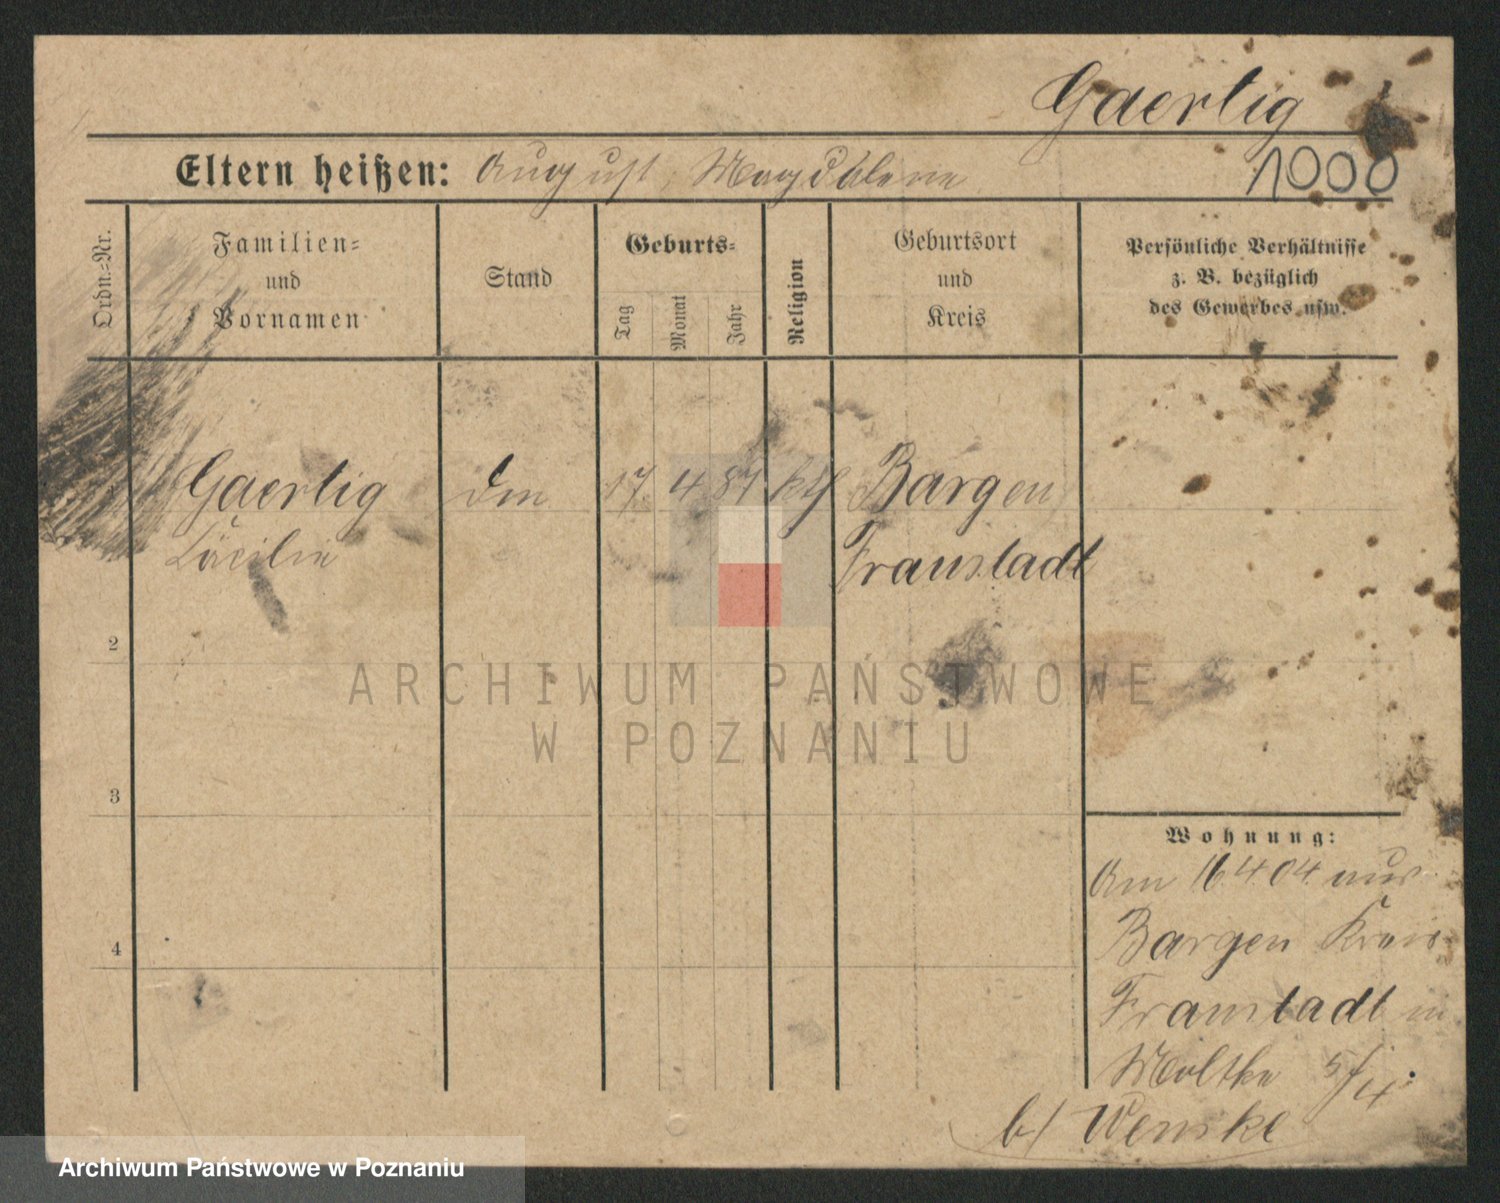 Gaertig
1000
Eltern heißen: August, Magdalene
Ordn.-Nr.
Familien-
und
Vornamen
Stand
Geburts-
Tag
Monat
Jahr
Religion
Geburtsort
und
Kreis
Persönliche Verhältnisse
z. B. bezüglich
des Gewerbes usw.
Gaertig 17 4 87 kth Bargen
Cäcilie Fraustadt
2
3
4
Wohnung:
Am 16 4 04 aus
Bargen Kreis
Fraustadt in
Moltke
b/ Wenske
ARCHIWUM PAŃSTWOWE
W POZNANIU
Archiwum Państwowe w Poznaniu